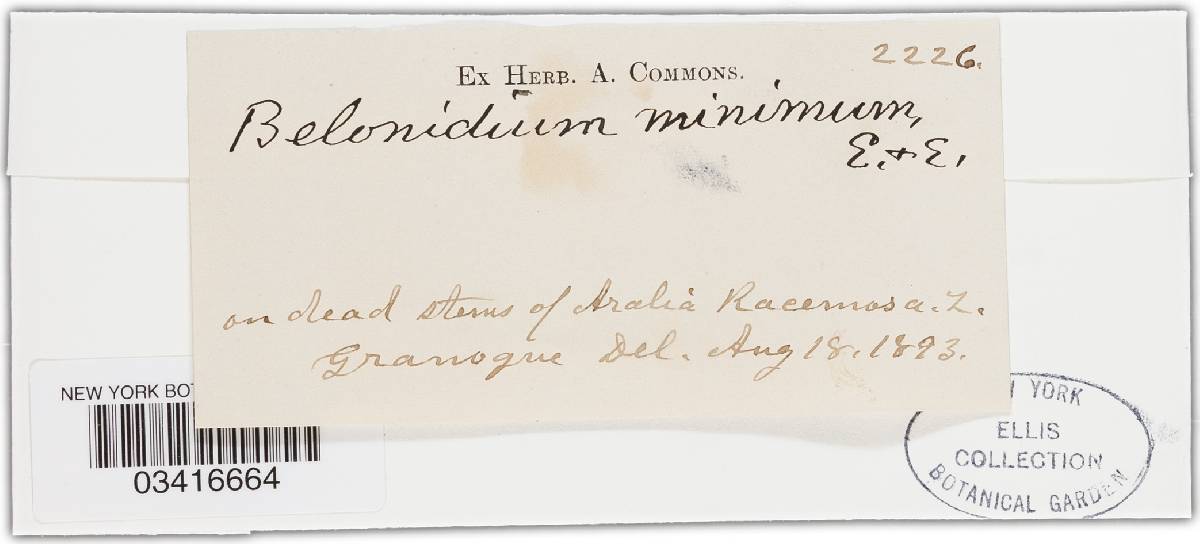 2226.
Ex Herb. A. Commons.
Belonidium minimum,
E. & E.
on dead stems of Aralia Racemosa. L.
Granogue Del. Aug 18. 1893.
NEW YORK BOT
03416664
YORK
ELLIS
COLLECTION
BOTANICAL GARDEN